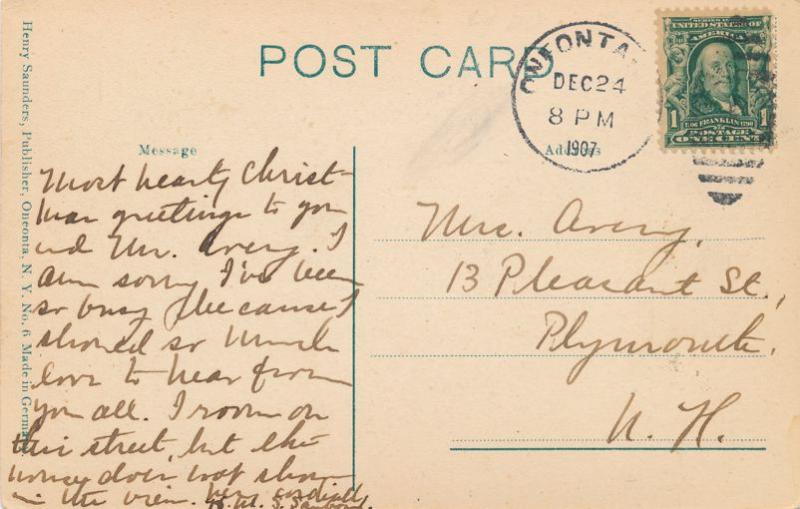 POST CARD
ONEONTA
DEC 24
8 PM
1907
SERIES 1902
UNITED STATES OF
AMERICA
1 1
FRANKLIN
POSTAGE
ONE CENT
Henry Saunders, Publisher, Oneonta, N. Y. No. 6 Made in Germany
Message
Most hearty Christ-
mas greetings to you
and Mr. Avery. I
am sorry I've been
so busy because I
should so much
love to hear from
you all. I room on
this street, but the
house does not show
in the view. Very cordially
S. Sanborn.
Address
Mrs. Avery,
13 Pleasant St.,
Plymouth,
N. H.